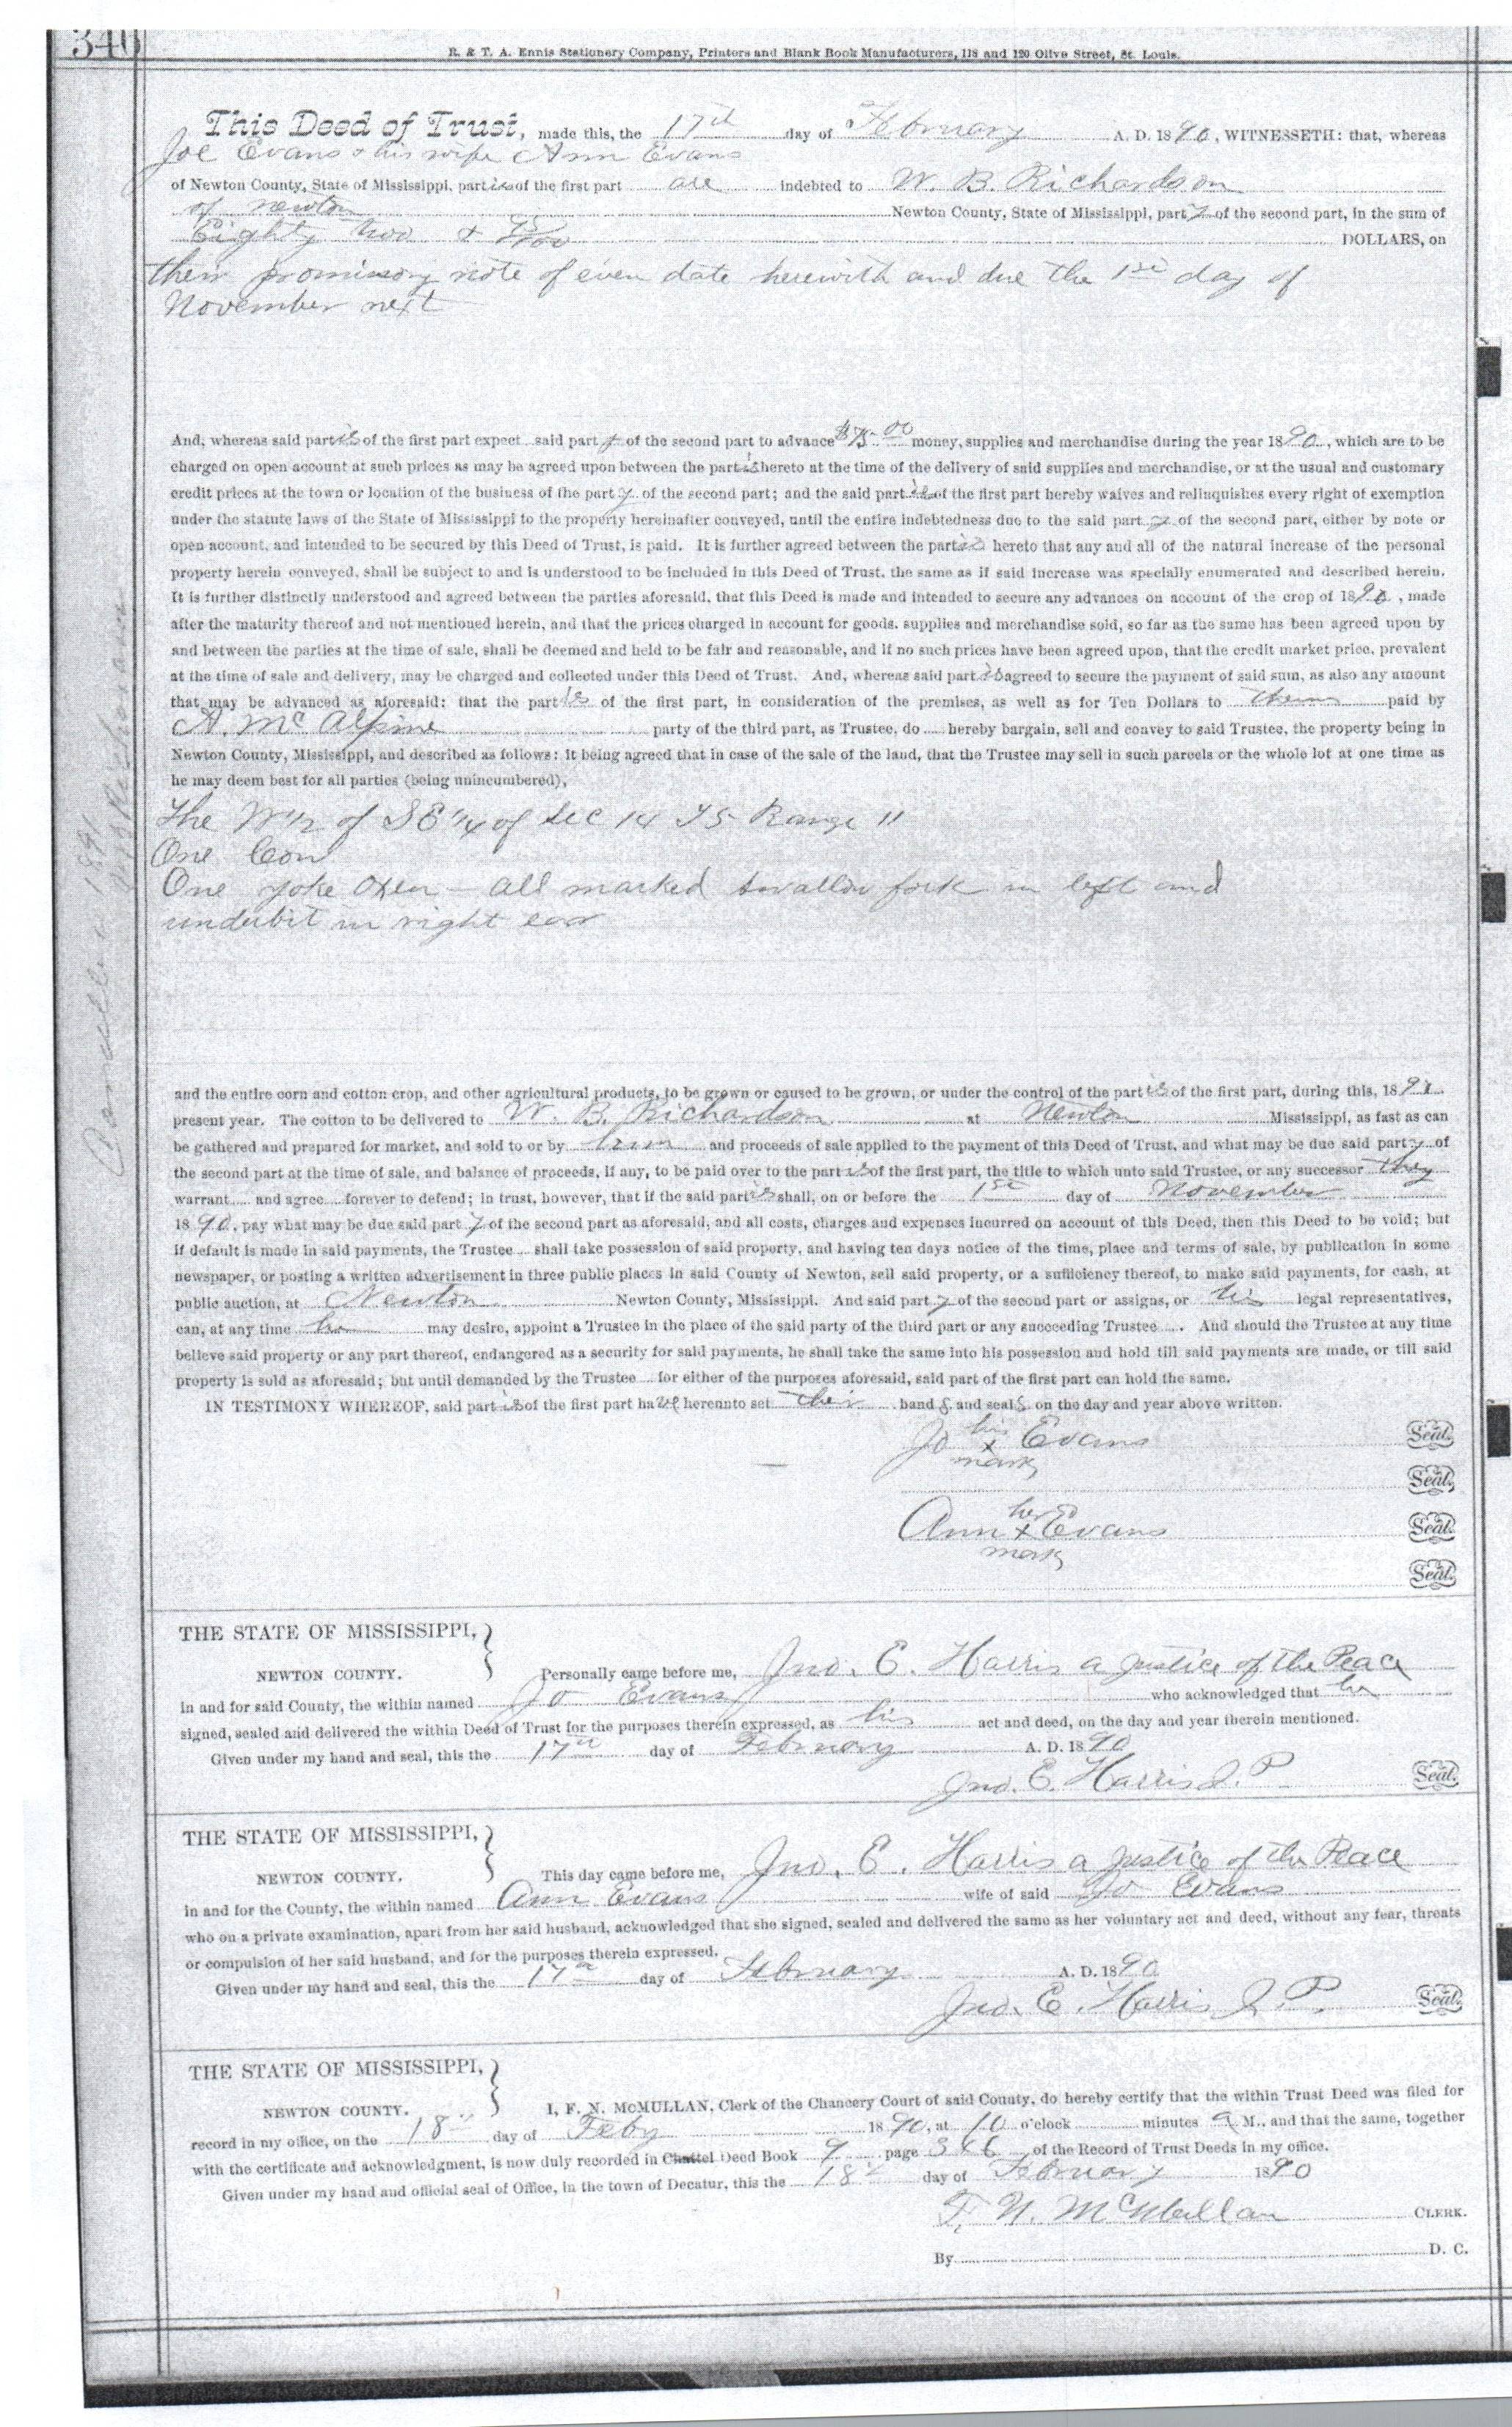 340
R. & T. A. Ennis Stationery Company, Printers and Blank Book Manufacturers, 118 and 120 Olive Street, St. Louis.
This Deed of Trust, made this, the 17th day of February A. D. 1890, WITNESSETH: that, whereas
Joe Evans & his wife Ann Evans
of Newton County, State of Mississippi, parties of the first part are indebted to W. B. Richardson
of Newton Newton County, State of Mississippi, party of the second part, in the sum of
Eighty two & /100 DOLLARS, on
their promissory note of even date herewith and due the 1st day of
November next
And, whereas said parties of the first part expect said party of the second part to advance money, supplies and merchandise during the year 1890, which are to be
charged on open account at such prices as may be agreed upon between the parties hereto at the time of the delivery of said supplies and merchandise, or at the usual and customary
credit prices at the town or location of the business of the party of the second part; and the said parties of the first part hereby waives and relinquishes every right of exemption
under the statute laws of the State of Mississippi to the property hereinafter conveyed, until the entire indebtedness due to the said party of the second part, either by note or
open account, and intended to be secured by this Deed of Trust, is paid. It is further agreed between the parties hereto that any and all of the natural increase of the personal
property herein conveyed, shall be subject to and is understood to be included in this Deed of Trust, the same as if said increase was specially enumerated and described herein.
It is further distinctly understood and agreed between the parties aforesaid, that this Deed is made and intended to secure any advances on account of the crop of 1890, made
after the maturity thereof and not mentioned herein, and that the prices charged in account for goods, supplies and merchandise sold, so far as the same has been agreed upon by
and between the parties at the time of sale, shall be deemed and held to be fair and reasonable, and if no such prices have been agreed upon, that the credit market price, prevalent
at the time of sale and delivery, may be charged and collected under this Deed of Trust. And, whereas said parties agreed to secure the payment of said sum, as also any amount
that may be advanced as aforesaid: that the parties of the first part, in consideration of the premises, as well as for Ten Dollars to them paid by
A. McAlpine party of the third part, as Trustee, do hereby bargain, sell and convey to said Trustee, the property being in
Newton County, Mississippi, and described as follows: it being agreed that in case of the sale of the land, that the Trustee may sell in such parcels or the whole lot at one time as
he may deem best for all parties (being unincumbered),
The W 1/2 of SE 1/4 of Sec 14 T5 Range 11
One Cow
One yoke oxen – all marked swallow fork in left and
underbit in right ear
and the entire corn and cotton crop, and other agricultural products, to be grown or caused to be grown, or under the control of the parties of the first part, during this, 189
present year. The cotton to be delivered to W. B. Richardson at Newton Mississippi, as fast as can
be gathered and prepared for market, and sold to or by him and proceeds of sale applied to the payment of this Deed of Trust, and what may be due said party of
the second part at the time of sale, and balance of proceeds, if any, to be paid over to the parties of the first part, the title to which unto said Trustee, or any successor they
warrant and agree forever to defend; in trust, however, that if the said parties shall, on or before the 1st day of November
1890, pay what may be due said party of the second part as aforesaid, and all costs, charges and expenses incurred on account of this Deed, then this Deed to be void; but
if default is made in said payments, the Trustee shall take possession of said property, and having ten days notice of the time, place and terms of sale, by publication in some
newspaper, or posting a written advertisement in three public places in said County of Newton, sell said property, or a sufficiency thereof, to make said payments, for cash, at
public auction, at Newton Newton County, Mississippi. And said party of the second part or assigns, or his legal representatives,
can, at any time he may desire, appoint a Trustee in the place of the said party of the third part or any succeeding Trustee. And should the Trustee at any time
believe said property or any part thereof, endangered as a security for said payments, he shall take the same into his possession and hold till said payments are made, or till said
property is sold as aforesaid; but until demanded by the Trustee for either of the purposes aforesaid, said part of the first part can hold the same.
IN TESTIMONY WHEREOF, said parties of the first part have hereunto set their hands and seals on the day and year above written.
his
Jo x Evans Seal.
mark
Seal.
her
Ann x Evans Seal.
mark
Seal.
THE STATE OF MISSISSIPPI, }
NEWTON COUNTY. Personally came before me, Jno. E. Harris a Justice of the Peace
in and for said County, the within named Jo Evans who acknowledged that he
signed, sealed and delivered the within Deed of Trust for the purposes therein expressed, as his act and deed, on the day and year therein mentioned.
Given under my hand and seal, this the 17th day of February A. D. 1890
Jno. E. Harris J. P. Seal.
THE STATE OF MISSISSIPPI, }
NEWTON COUNTY. This day came before me, Jno. E. Harris a Justice of the Peace
in and for the County, the within named Ann Evans wife of said Jo Evans
who on a private examination, apart from her said husband, acknowledged that she signed, sealed and delivered the same as her voluntary act and deed, without any fear, threats
or compulsion of her said husband, and for the purposes therein expressed.
Given under my hand and seal, this the 17th day of February A. D. 1890
Jno. E. Harris J. P. Seal.
THE STATE OF MISSISSIPPI, }
NEWTON COUNTY. I, F. N. McMULLAN, Clerk of the Chancery Court of said County, do hereby certify that the within Trust Deed was filed for
record in my office, on the 18" day of Feby 1890, at 10 o'clock minutes A M., and that the same, together
with the certificate and acknowledgment, is now duly recorded in Chattel Deed Book 9 page of the Record of Trust Deeds in my office.
Given under my hand and official seal of Office, in the town of Decatur, this the 18" day of February 1890
F. N. McMullan CLERK.
By D. C.